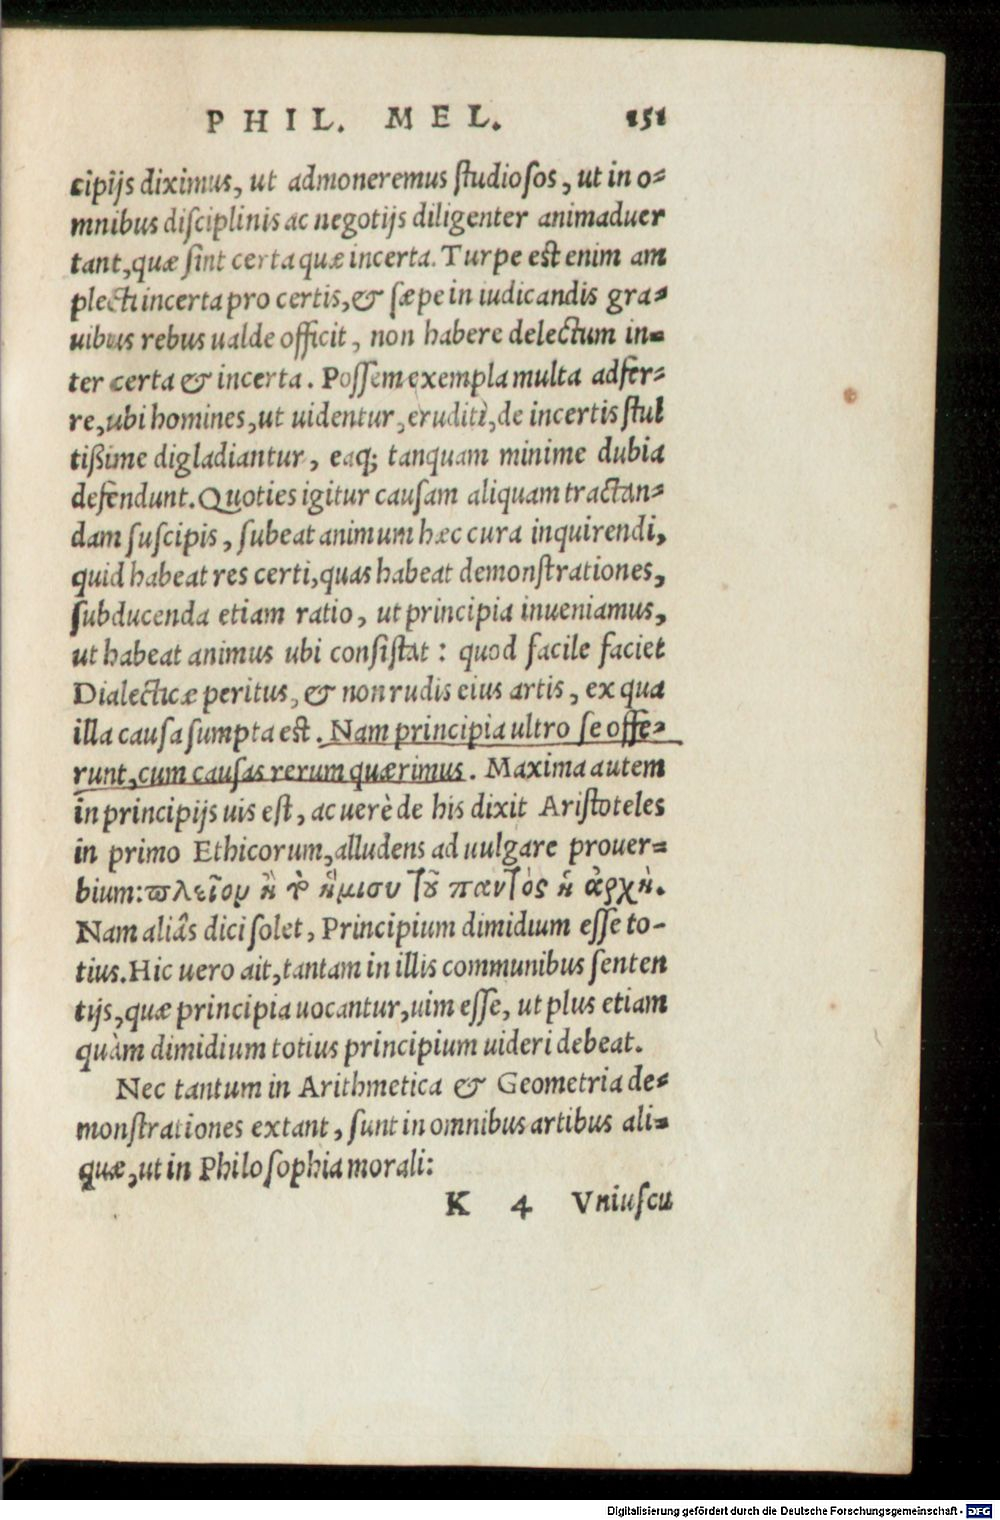 PHIL. MEL. 151
cipijs diximus, ut admoneremus studiosos, ut in o-
mnibus disciplinis ac negotijs diligenter animaduer
tant, quæ sint certa quæ incerta. Turpe est enim am
plecti incerta pro certis, & sæpe in iudicandis gra-
uibus rebus ualde officit, non habere delectum in-
ter certa & incerta. Possem exempla multa adfer-
re, ubi homines, ut uidentur, eruditi, de incertis stul
tißime digladiantur, eaq; tanquam minime dubia
defendunt. Quoties igitur causam aliquam tractan-
dam suscipis, subeat animum hæc cura inquirendi,
quid habeat res certi, quas habeat demonstrationes,
subducenda etiam ratio, ut principia inueniamus,
ut habeat animus ubi consistat: quod facile faciet
Dialecticæ peritus, & non rudis eius artis, ex qua
illa causa sumpta est. Nam principia ultro se offe-
runt, cum causas rerum quærimus. Maxima autem
in principijs uis est, ac uerè de his dixit Aristoteles
in primo Ethicorum, alludens ad uulgare prouer-
bium: πλεῖον ἢ τὸ ἥμισυ τοῦ παντὸς ἡ ἀρχή.
Nam aliâs dici solet, Principium dimidium esse to-
tius. Hic uero ait, tantam in illis communibus senten
tijs, quæ principia uocantur, uim esse, ut plus etiam
quàm dimidium totius principium uideri debeat.
Nec tantum in Arithmetica & Geometria de-
monstrationes extant, sunt in omnibus artibus ali-
quæ, ut in Philosophia morali:
K 4 Vniuscu
Digitalisierung gefördert durch die Deutsche Forschungsgemeinschaft - DFG